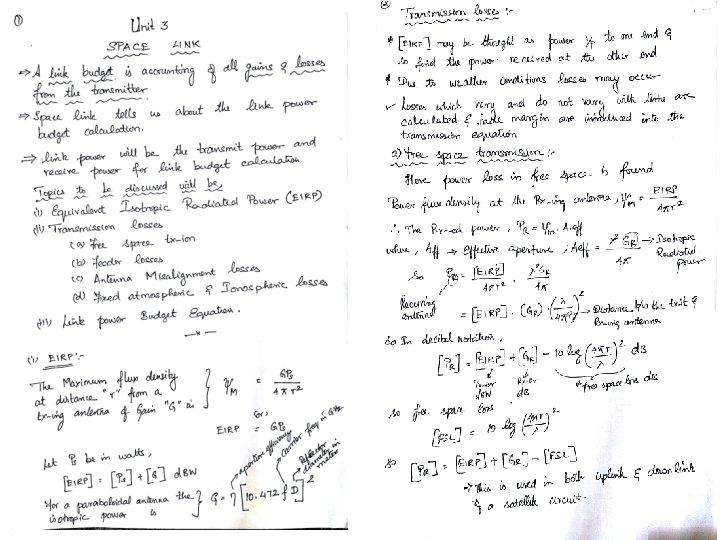 ①
Unit 3
SPACE LINK
⇒ A link budget is accounting of all gains & losses
from the transmitter
⇒ Space link tells us about the link power
budget calculation.
⇒ link power will be the transmit power and
receive power for link budget calculation
Topics to be discussed will be,
(i) Equivalent Isotropic Radiated Power (EIRP)
(ii) Transmission losses
(a) free space tx-ion
(b) feeder losses
(c) Antenna Misalignment losses
(d) Fixed atmospheric & Ionospheric losses
(iii) Link power Budget Equation.
(i) EIRP:-
The Maximum flux density
at distance "r" from a
tx-ing antenna of Gain "G" is
Ψ_M = GPs / 4πr²
or,
EIRP = GPs
Let Ps be in watts,
[EIRP] = [Ps] + [G] dBW
for a paraboloidal antenna the
isotropic power is
G = η [10.472 f D]²
aperture efficiency
Carrier freq in GHz
Reflector diameter in meter
②
Transmission losses :-
* [EIRP] may be thought as power i/p to one end &
to find the power received at the other end
* Due to weather conditions losses may occur
✓ Losses which vary and do not vary with time are
calculated & fade margin are introduced into the
transmission equation
a) free space transmission :-
Here power loss in free space is found
Power flux density at the Rx-ing antenna, Ψ_M = EIRP / 4πr²
∴ The Rx-ed power, P_R = Ψ_M . Aeff
where, Aeff → Effective aperture ; Aeff = λ² G_R / 4π → Isotropic Radiated power
So P_R = [EIRP] / 4πr² . λ²G_R / 4π
Receiving antenna
= [EIRP] . (G_R) . (λ / 4πr)² → Distance b/w the txmit & Rx-ing antenna
So In decibel notation,
[P_R] = [EIRP] + [G_R] - 10 log (4πr / λ)² dB
in dBW
free space loss dB
so free space loss
[FSL] = 10 log (4πr / λ)²
so [P_R] = [EIRP] + [G_R] - [FSL]
→ This is used in both uplink & downlink
of a satellite circuit.